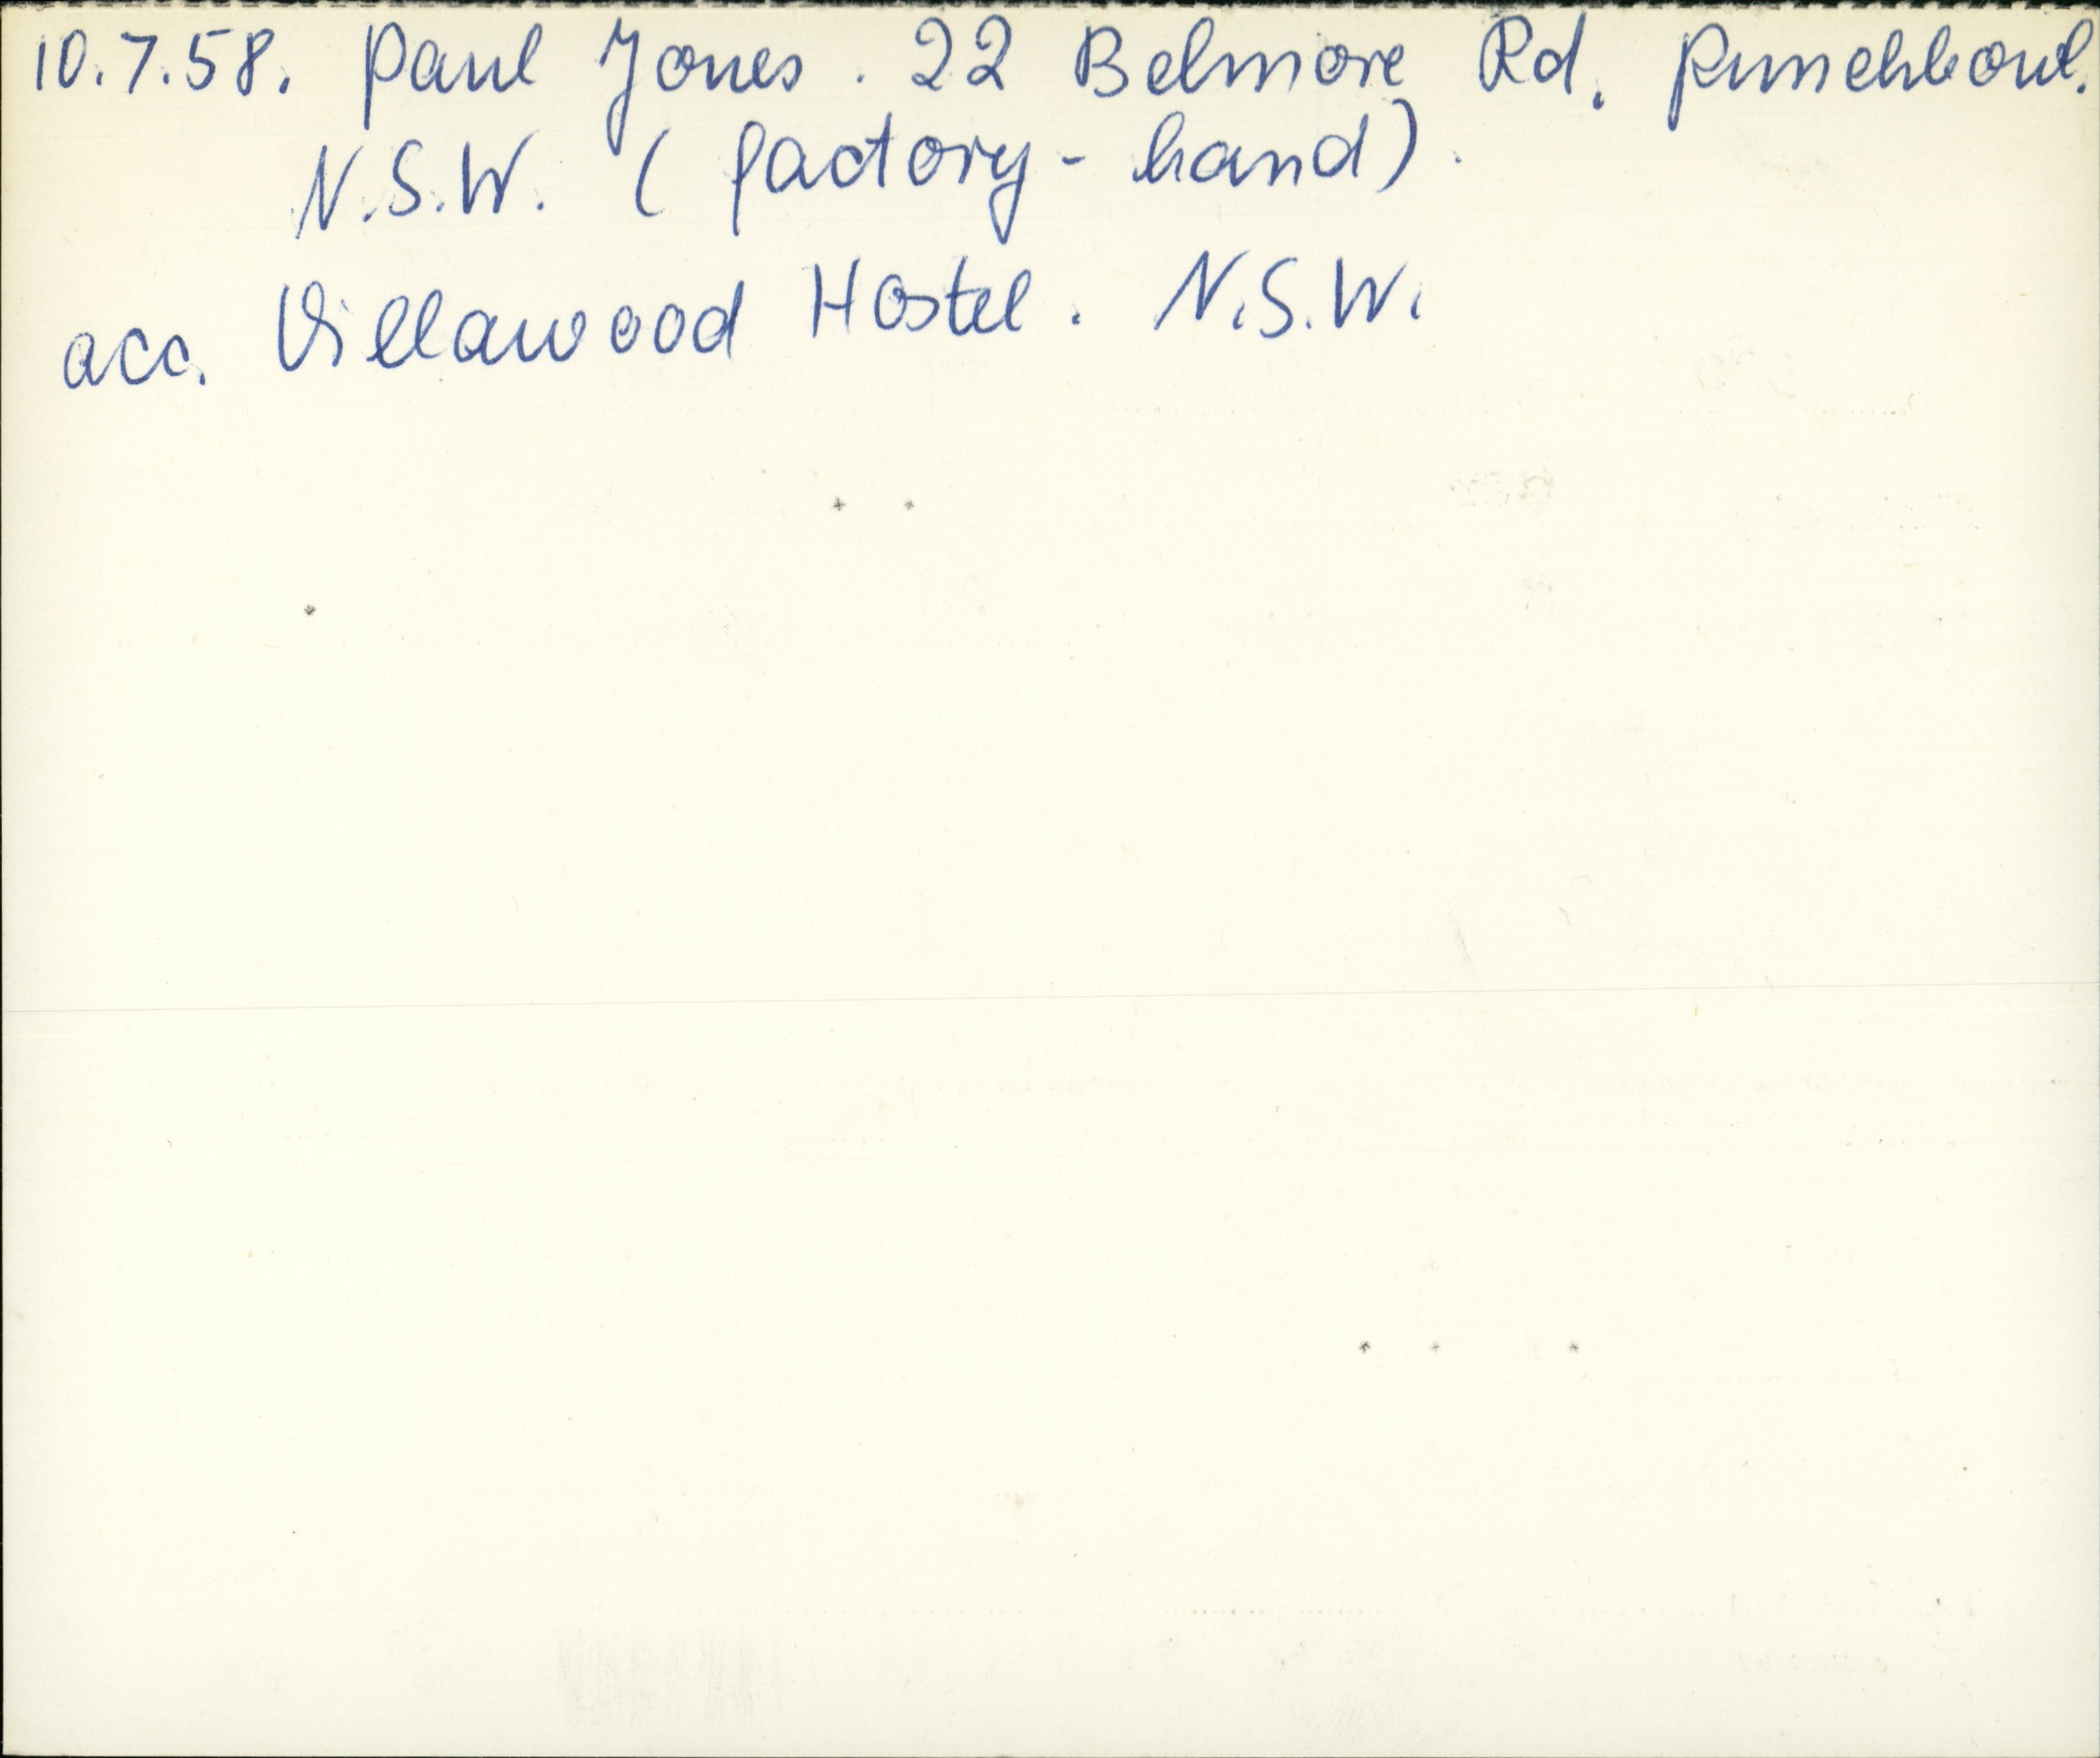 10.7.58. Paul Jones. 22 Belmore Rd. Punchbowl.
N.S.W. (factory-hand).
acc. Villawood Hostel. N.S.W.